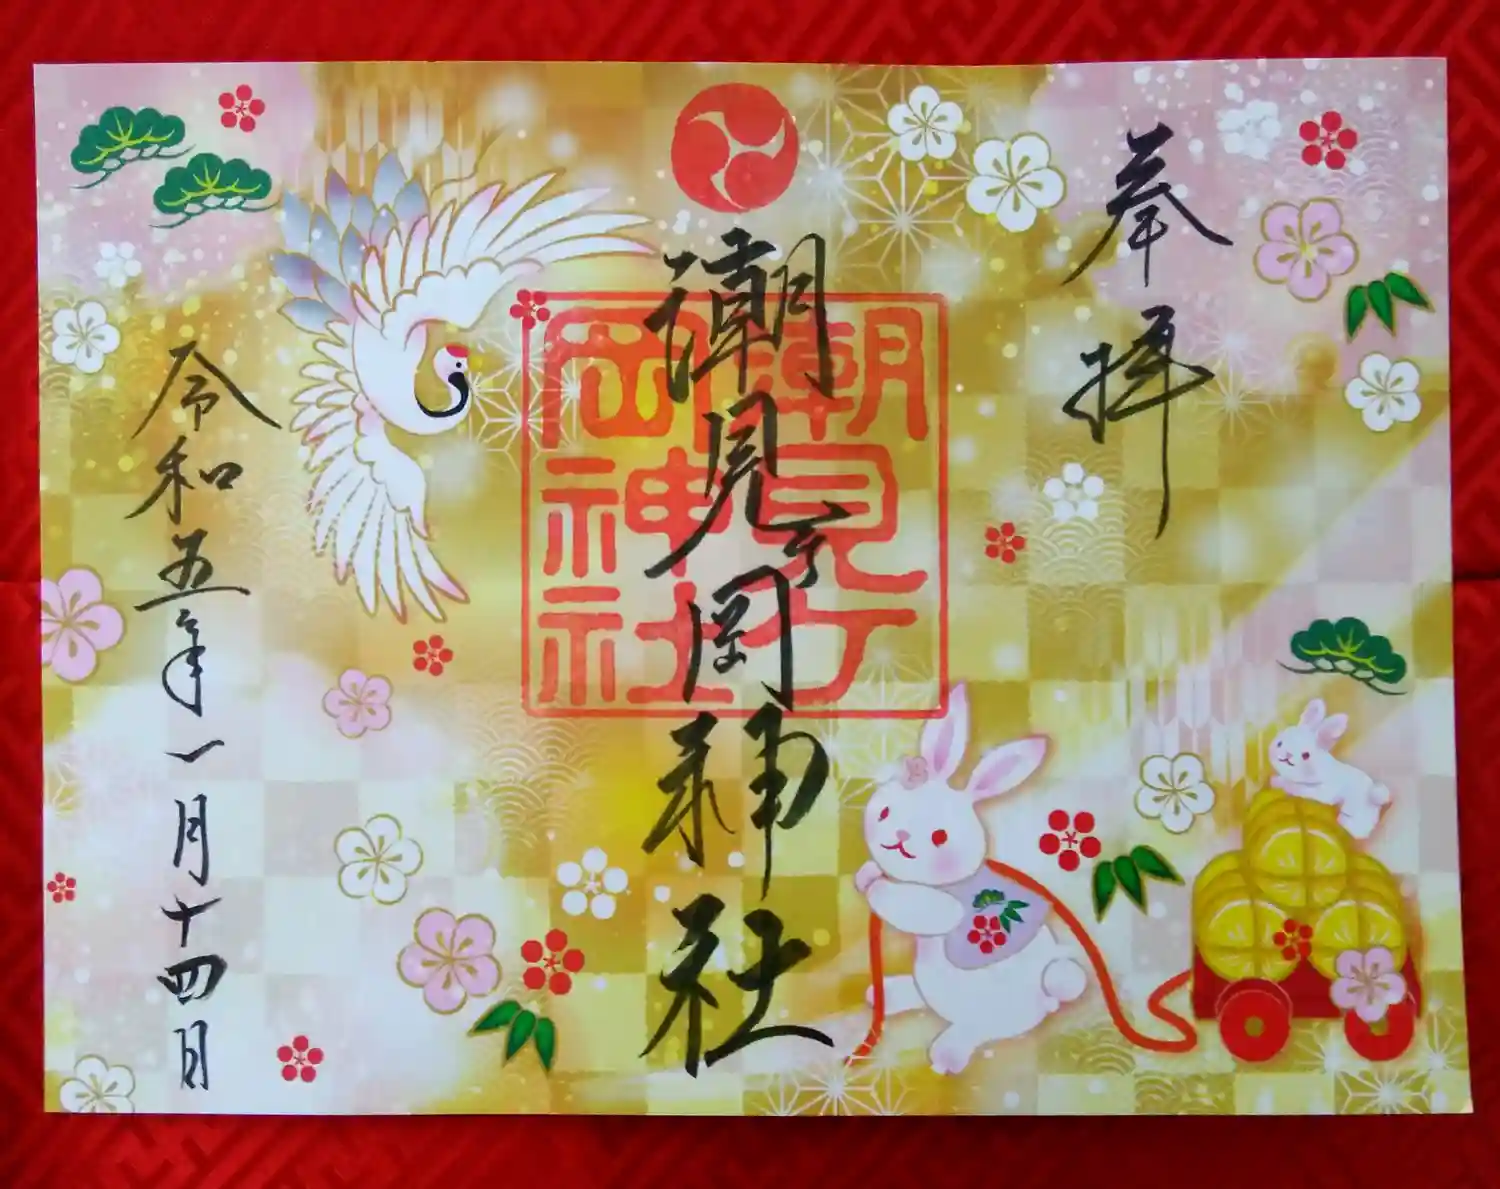 奉拝
潮見ヶ岡神社
潮見ヶ
岡神社
令和五年一月十四日